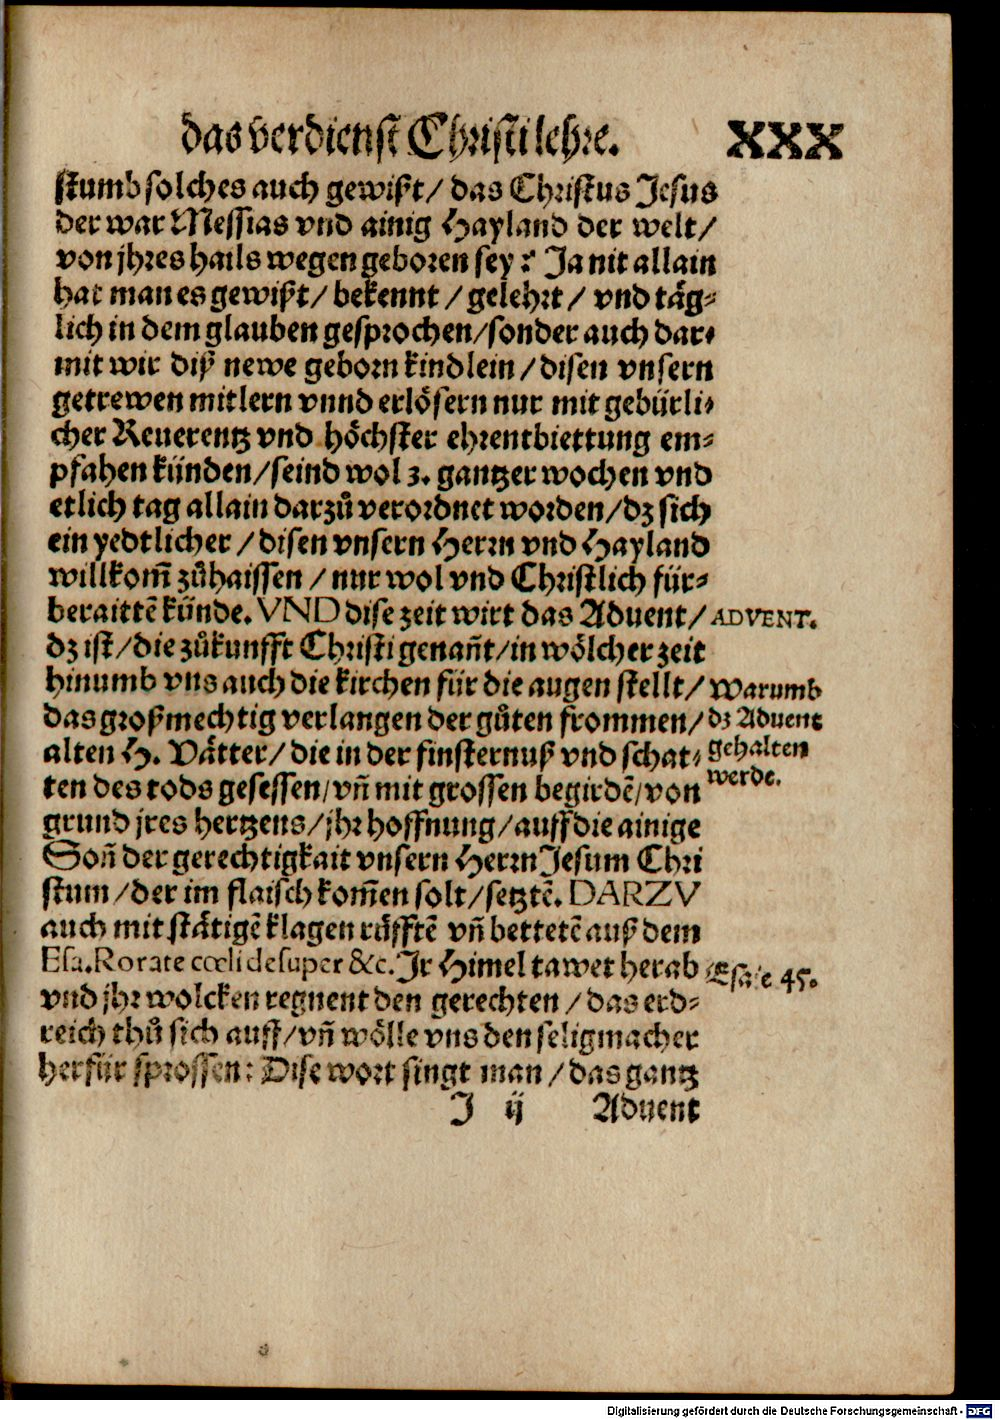 das verdienst Christi lehre. XXX
stumb solches auch gewißt/ das Christus Jesus
der war Messias vnd ainig Hayland der welt/
von jhres hails wegen geboren sey? Ja nit allain
hat man es gewißt/ bekennt/ gelehrt/ vnd täg⸗
lich in dem glauben gesprochen/ sonder auch dar⸗
mit wir diß newe geborn kindlein/ disen vnsern
getrewen mitlern vnnd erlösern nur mit gebürli⸗
cher Reuerentz vnd höchster ehrentbiettung em⸗
pfahen künden/ seind wol 3. gantzer wochen vnd
etlich tag allain darzů verordnet worden/ dz sich
ein yedtlicher/ disen vnsern Herrn vnd Hayland
willkom̃ zůhaissen/ nur wol vnd Christlich für⸗
beraittẽ künde. VND dise zeit wirt das Aduent/
ADVENT.
dz ist/ die zůkunfft Christi genañt/ in wölcher zeit
hinumb vns auch die kirchen für die augen stellt/
das großmechtig verlangen der gůten frommen/
alten H. Vätter/ die in der finsternuß vnd schat⸗
ten des tods gesessen/ vñ mit grossen begirdẽ/ von
Warumb
dz Aduent
gehalten
werde.
grund jres hertzens/ jhr hoffnung/ auff die ainige
Soñ der gerechtigkait vnsern Herrn Jesum Chri
stum/ der im flaisch kom̃en solt/ setztẽ. DARZV
auch mit stätigẽ klagen růfftẽ vñ bettetẽ auß dem
Esa. Rorate cœli desuper &c. Jr Himel tawet herab
Esaie 45.
vnd jhr wolcken regnent den gerechten/ das erd⸗
reich thů sich auff/ vñ wölle vns den seligmacher
herfür sprossen: Dise wort singt man/ das gantz
J ij Aduent
Digitalisierung gefördert durch die Deutsche Forschungsgemeinschaft - DFG